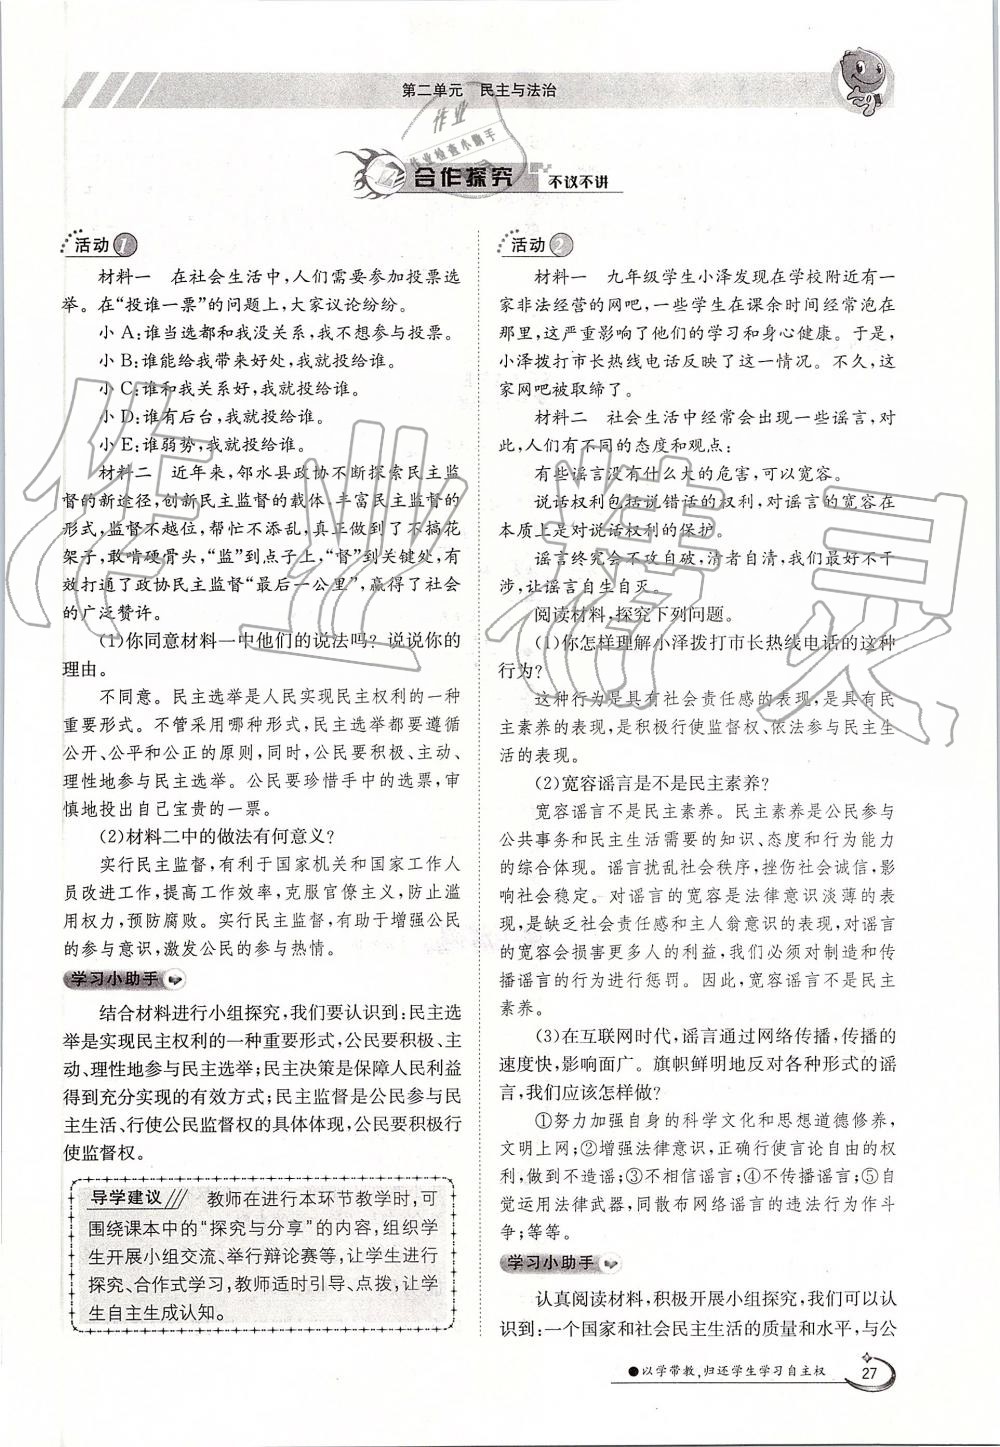 第二单元　民主与法治
作业
作业检查小助手
合作探究　不议不讲
活动1
材料一　在社会生活中,人们需要参加投票选
举。在“投谁一票”的问题上,大家议论纷纷。
小A:谁当选都和我没关系,我不想参与投票。
小B:谁能给我带来好处,我就投给谁。
小C:谁和我关系好,我就投给谁。
小D:谁有后台,我就投给谁。
小E:谁弱势,我就投给谁。
材料二　近年来,邻水县政协不断探索民主监
督的新途径,创新民主监督的载体,丰富民主监督的
形式,监督不越位,帮忙不添乱,真正做到了不搞花
架子,敢啃硬骨头,“监”到点子上,“督”到关键处,有
效打通了政协民主监督“最后一公里”,赢得了社会
的广泛赞许。
(1)你同意材料一中他们的说法吗?说说你的
理由。
不同意。民主选举是人民实现民主权利的一种
重要形式。不管采用哪种形式,民主选举都要遵循
公开、公平和公正的原则,同时,公民要积极、主动、
理性地参与民主选举。公民要珍惜手中的选票,审
慎地投出自己宝贵的一票。
(2)材料二中的做法有何意义?
实行民主监督,有利于国家机关和国家工作人
员改进工作,提高工作效率,克服官僚主义,防止滥
用权力,预防腐败。实行民主监督,有助于增强公民
的参与意识,激发公民的参与热情。
学习小助手
结合材料进行小组探究,我们要认识到:民主选
举是实现民主权利的一种重要形式,公民要积极、主
动、理性地参与民主选举;民主决策是保障人民利益
得到充分实现的有效方式;民主监督是公民参与民
主生活、行使公民监督权的具体体现,公民要积极行
使监督权。
导学建议　教师在进行本环节教学时,可
围绕课本中的“探究与分享”的内容,组织学
生开展小组交流、举行辩论赛等,让学生进行
探究、合作式学习,教师适时引导、点拨,让学
生自主生成认知。
活动2
材料一　九年级学生小泽发现在学校附近有一
家非法经营的网吧,一些学生在课余时间经常泡在
那里,这严重影响了他们的学习和身心健康。于是,
小泽拨打市长热线电话反映了这一情况。不久,这
家网吧被取缔了。
材料二　社会生活中经常会出现一些谣言,对
此,人们有不同的态度和观点:
有些谣言没有什么大的危害,可以宽容。
说话权利包括说错话的权利,对谣言的宽容在
本质上是对说话权利的保护。
谣言终究会不攻自破,清者自清,我们最好不干
涉,让谣言自生自灭。
阅读材料,探究下列问题。
(1)你怎样理解小泽拨打市长热线电话的这种
行为?
这种行为是具有社会责任感的表现,是具有民
主素养的表现,是积极行使监督权、依法参与民主生
活的表现。
(2)宽容谣言是不是民主素养?
宽容谣言不是民主素养。民主素养是公民参与
公共事务和民主生活需要的知识、态度和行为能力
的综合体现。谣言扰乱社会秩序,挫伤社会诚信,影
响社会稳定。对谣言的宽容是法律意识淡薄的表
现,是缺乏社会责任感和主人翁意识的表现,对谣言
的宽容会损害更多人的利益,我们必须对制造和传
播谣言的行为进行惩罚。因此,宽容谣言不是民主
素养。
(3)在互联网时代,谣言通过网络传播,传播的
速度快,影响面广。旗帜鲜明地反对各种形式的谣
言,我们应该怎样做?
①努力加强自身的科学文化和思想道德修养,
文明上网;②增强法律意识,正确行使言论自由的权
利,做到不造谣;③不相信谣言;④不传播谣言;⑤自
觉运用法律武器,同散布网络谣言的违法行为作斗
争;等等。
学习小助手
认真阅读材料,积极开展小组探究,我们可以认
识到:一个国家和社会民主生活的质量和水平,与公
●以学带教,归还学生学习自主权
27
作业精灵